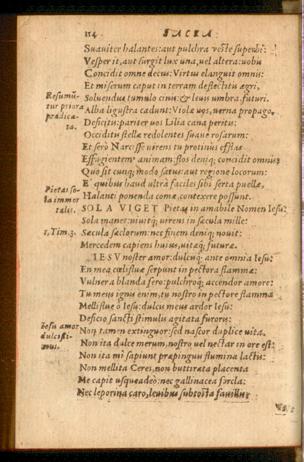 114 SACRA
Suauiter halantes: aut pulchra veste superbi:
Vesper it, aut surgit lux una, vel altera: vobis
Concidit omne decus: Virtus elanguit omnis:
Et miserum caput in terram deflectitis ægri,
Resumi- Soluendus tumulo cinis & leuis umbra futuri.
tur priora Alba ligustra cadunt: Violæ vos, verna propago,
prædica-
ta. Deficitis: pariter vos Lilia cana peritis:
Occiditis stellæ redolentes suaue rosarum:
Et serò Narcisse virens tu protinus efflas
Effugientem animam: flos deniq; concidit omnis
Quo sit cunq; modo satus: aut regione locorum:
E' quibus haud ultrà faciles sibi serta puellæ,
Pietas so- Halanti ponenda comæ, contexere possunt.
la immor SOLA VIGET Pietas in amabile Nomen Iesu:
talis.
Sola manet: viuitq; virens in sæcula mille:
1. Tim. 3. Sæcula sæclorum: nec finem deniq; nouit:
Mercedem capiens huius, vitæq; futuræ.
IESV noster amor: dulcisq; ante omnia Iesu:
En mea cælistuæ serpunt in pectora flammæ:
Vulnera blanda fero: pulchroq; accendor amore:
Tu meus ignis enim, tu nostro in pectore flamma
Mellitus ô Iesu: dulcis meus ardor Iesu:
Deficio sancti stimulis agitata furoris:
Iesu amor Non tamen extinguor: sed nascor duplice vita.
dulcissi- Non ita dulce merum, nostro vel nectar in ore est:
mus.
Non ita mi sapiunt præpinguis flumina lactis:
Non mellita Ceres, non buttirata placenta
Me capit usqueadeò: nec gallinacea sorcla:
Nec leporina caro, leuibus subtosta fauillis